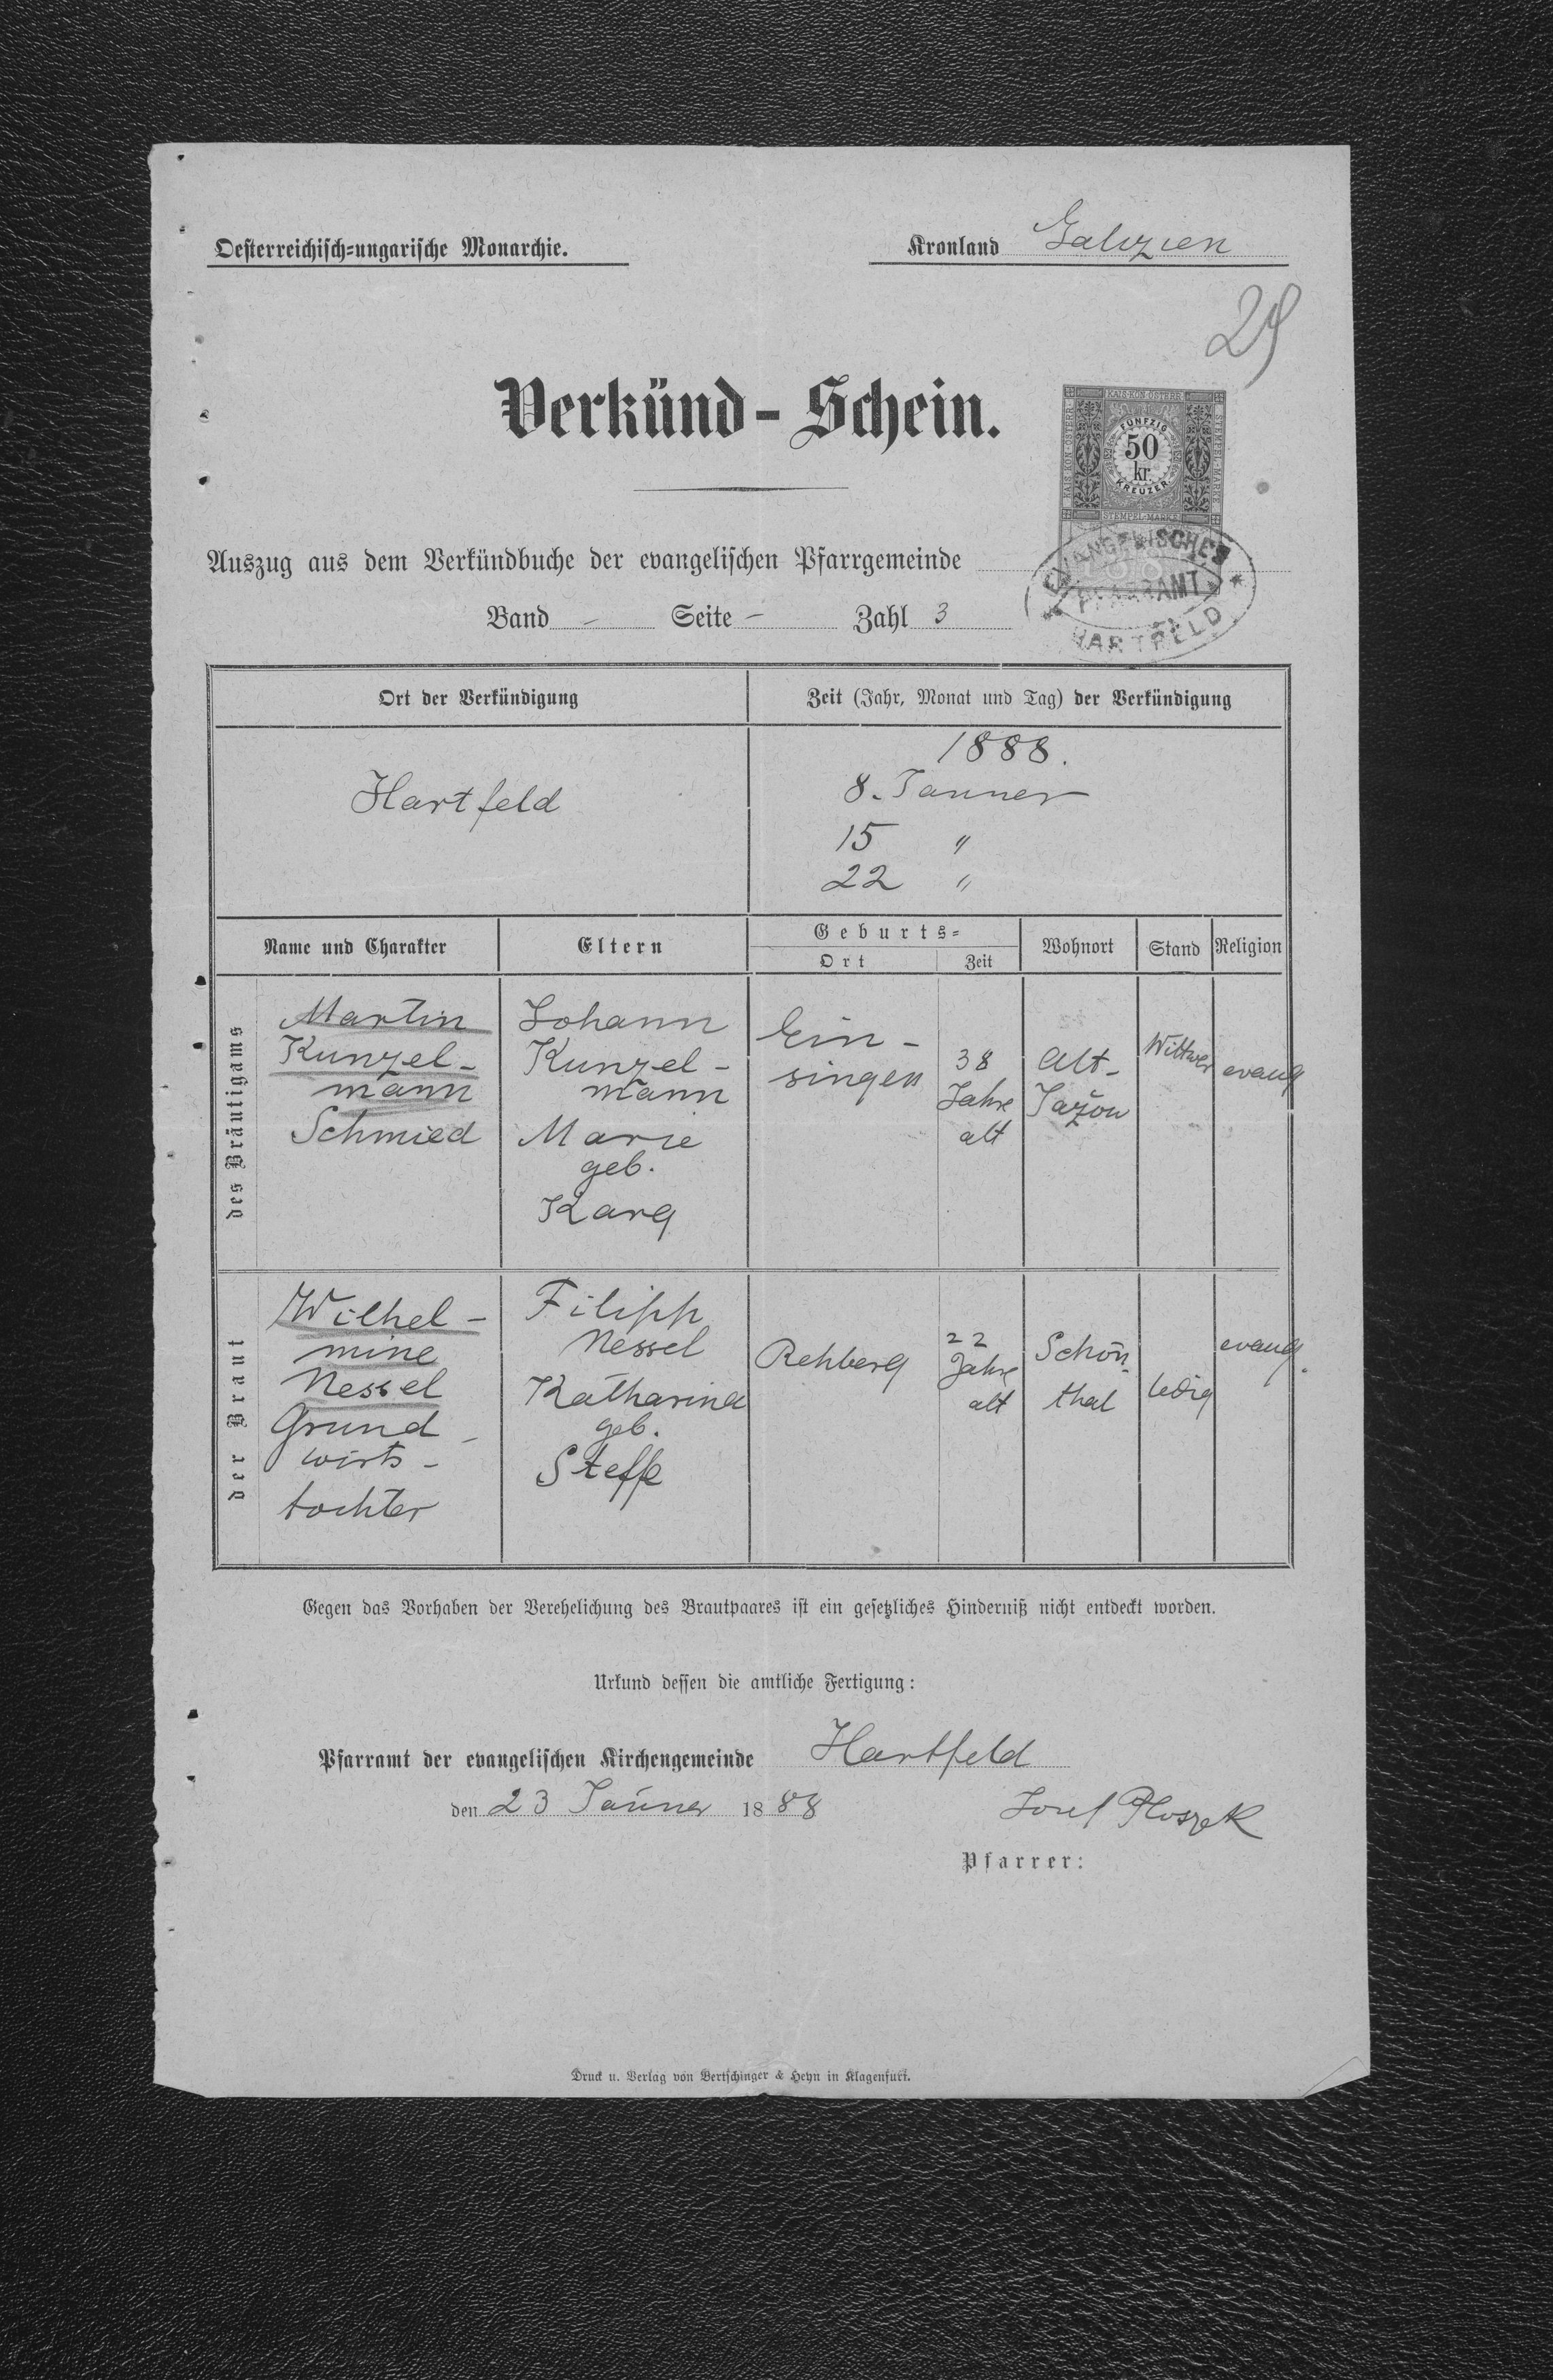 Oesterreichisch-ungarische Monarchie.
Kronland Galizien
Verkünd-Schein.
KAIS. KÖN. ÖSTERR.
STEMPEL-MARKE
FÜNFZIG
50
kr.
KREUZER
STEMPEL-MARKE
EVANGELISCHES
PFARRAMT
HARTFELD
Auszug aus dem Verkündbuche der evangelischen Pfarrgemeinde
Band - Seite - Zahl 3
Ort der Verkündigung
Zeit (Jahr, Monat und Tag) der Verkündigung
Hartfeld
1888.
8. Janner
15 "
22 "
Name und Charakter
Eltern
Geburts-
Ort
Zeit
Wohnort
Stand
Religion
des Bräutigams
Martin
Kunzel-
mann
Schmied
Johann
Kunzel-
mann
Marie
geb.
Karg
Ein-
singen
38
Jahre
alt
Alt-
Jažow
Wittwer
evang
der Braut
Wilhel-
mine
Nessel
Grund-
wirts-
tochter
Filipp
Nessel
Katharina
geb.
Steffe
Rehberg
22
Jahre
alt
Schön-
thal
ledig
evang.
Gegen das Vorhaben der Verehelichung des Brautpaares ist ein gesetzliches Hinderniß nicht entdeckt worden.
Urkund dessen die amtliche Fertigung:
Pfarramt der evangelischen Kirchengemeinde Hartfeld
den 23 Jänner 1888
Josef Ploszek
Pfarrer:
Druck u. Verlag von Bertschinger & Heyn in Klagenfurt.